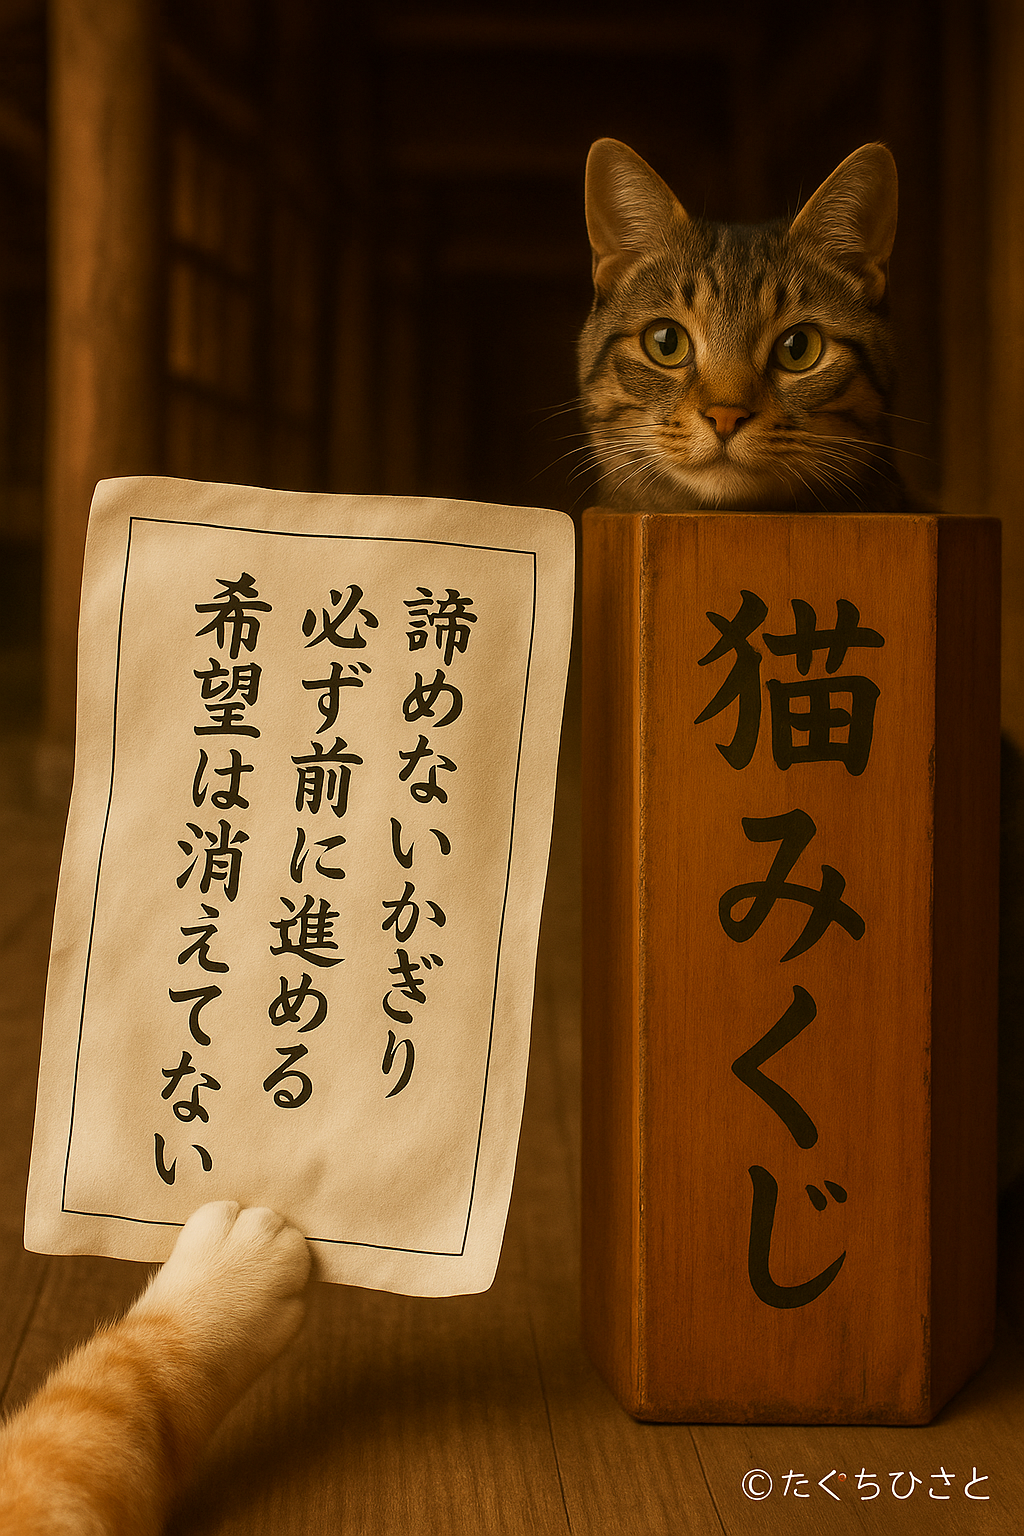 猫みくじ
諦めないかぎり
必ず前に進める
希望は消えてない
©たぐちひさと